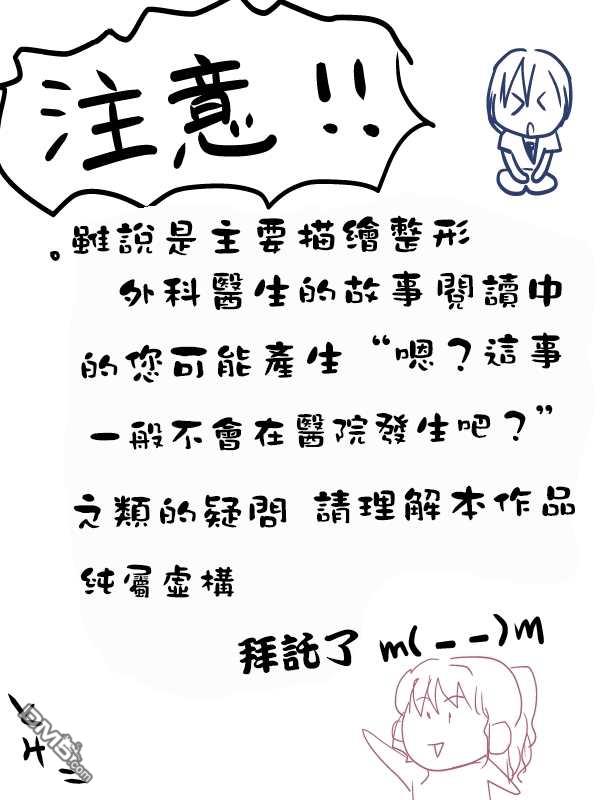 注意!!
。雖說是主要描繪整形
外科醫生的故事閱讀中
的您可能產生“嗯？這事
一般不會在醫院發生吧？”
之類的疑問 請理解本作品
純屬虛構
拜託了 m(--)m
DM5.com